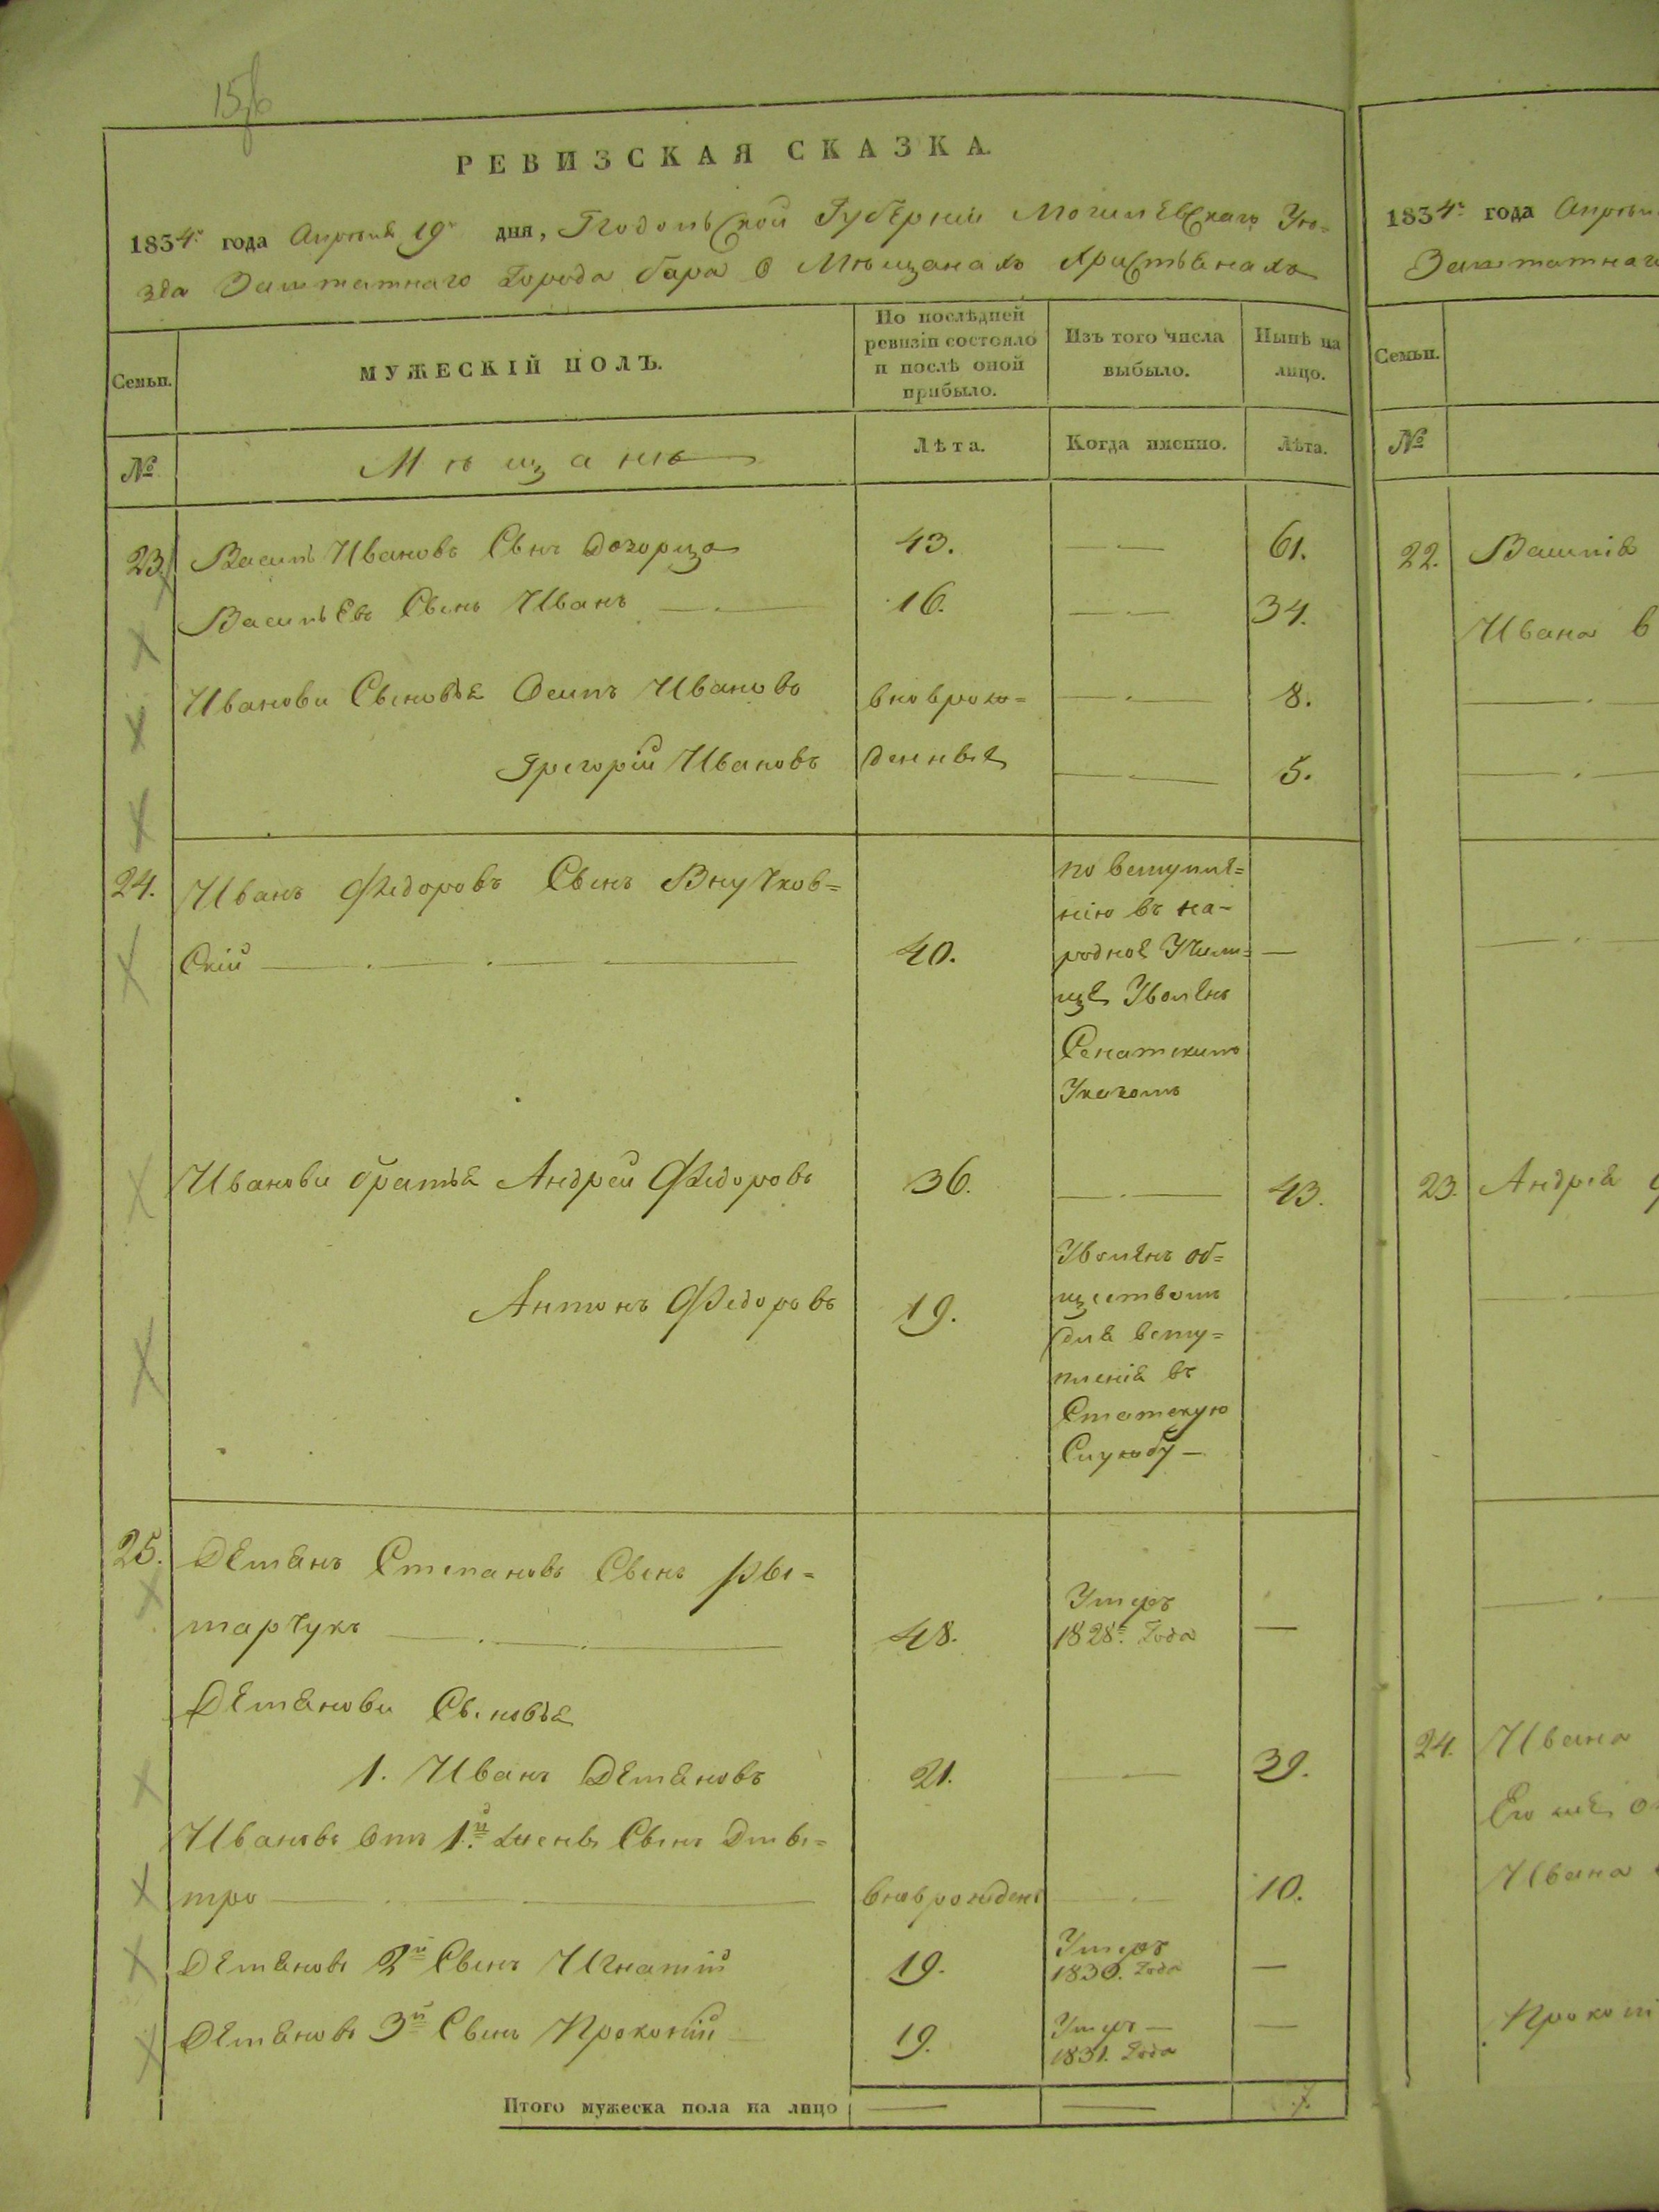 15об
РЕВИЗСКАЯ СКАЗКА.
1834го года Апреля 19го дня, Подольской Губерніи Могилевскаго Уѣ=
зда Заштатнаго Города Бара о Мѣщанахъ Христьянахъ
Семьи.
МУЖЕСКІЙ ПОЛЪ.
По послѣдней
ревизіи состояло
и послѣ оной
прибыло.
Изъ того числа
выбыло.
Нынѣ на
лицо.
№
Мѣщане
Лѣта.
Когда именно.
Лѣта.
23. Василь Ивановъ Сынъ 43. 61.
Васильевъ Сынъ Иванъ 16. 34.
Иванови Сыновья Осипъ Ивановъ вноврож= 8.
Григорій Ивановъ денныя 5.
24. Иванъ Федоровъ Сынъ Внучков=
скій 40.
по вступле=
нію въ на-
родное Учили=
ще Уволенъ
Сенатскимъ
Указомъ
Иванови братья Андрей Федоровъ 36. 43.
Антонъ Федоровъ 19.
Уволенъ об=
ществомъ
для всту=
пленія въ
Статскую
Службу
25. Демянъ Степановъ Сынъ Ры=
марчукъ 48.
Умеръ
1828го Года
Демянови Сыновья
1. Иванъ Демяновъ 21. 39.
Ивановъ отъ 1й Жены Сынъ Дмы=
тро вноврожденъ 10.
Демяновъ 2й Сынъ Игнатій 19.
Умеръ
1830. Года
Демяновъ 3й Сынъ Прокопій 19.
Умеръ
1831. Года
Итого мужеска пола на лицо 7.
1834го года Апреля
Заштатнаго
Семьи.
№
22.
Ивана в
23. Андрея
24. Ивана
Его же
Ивана